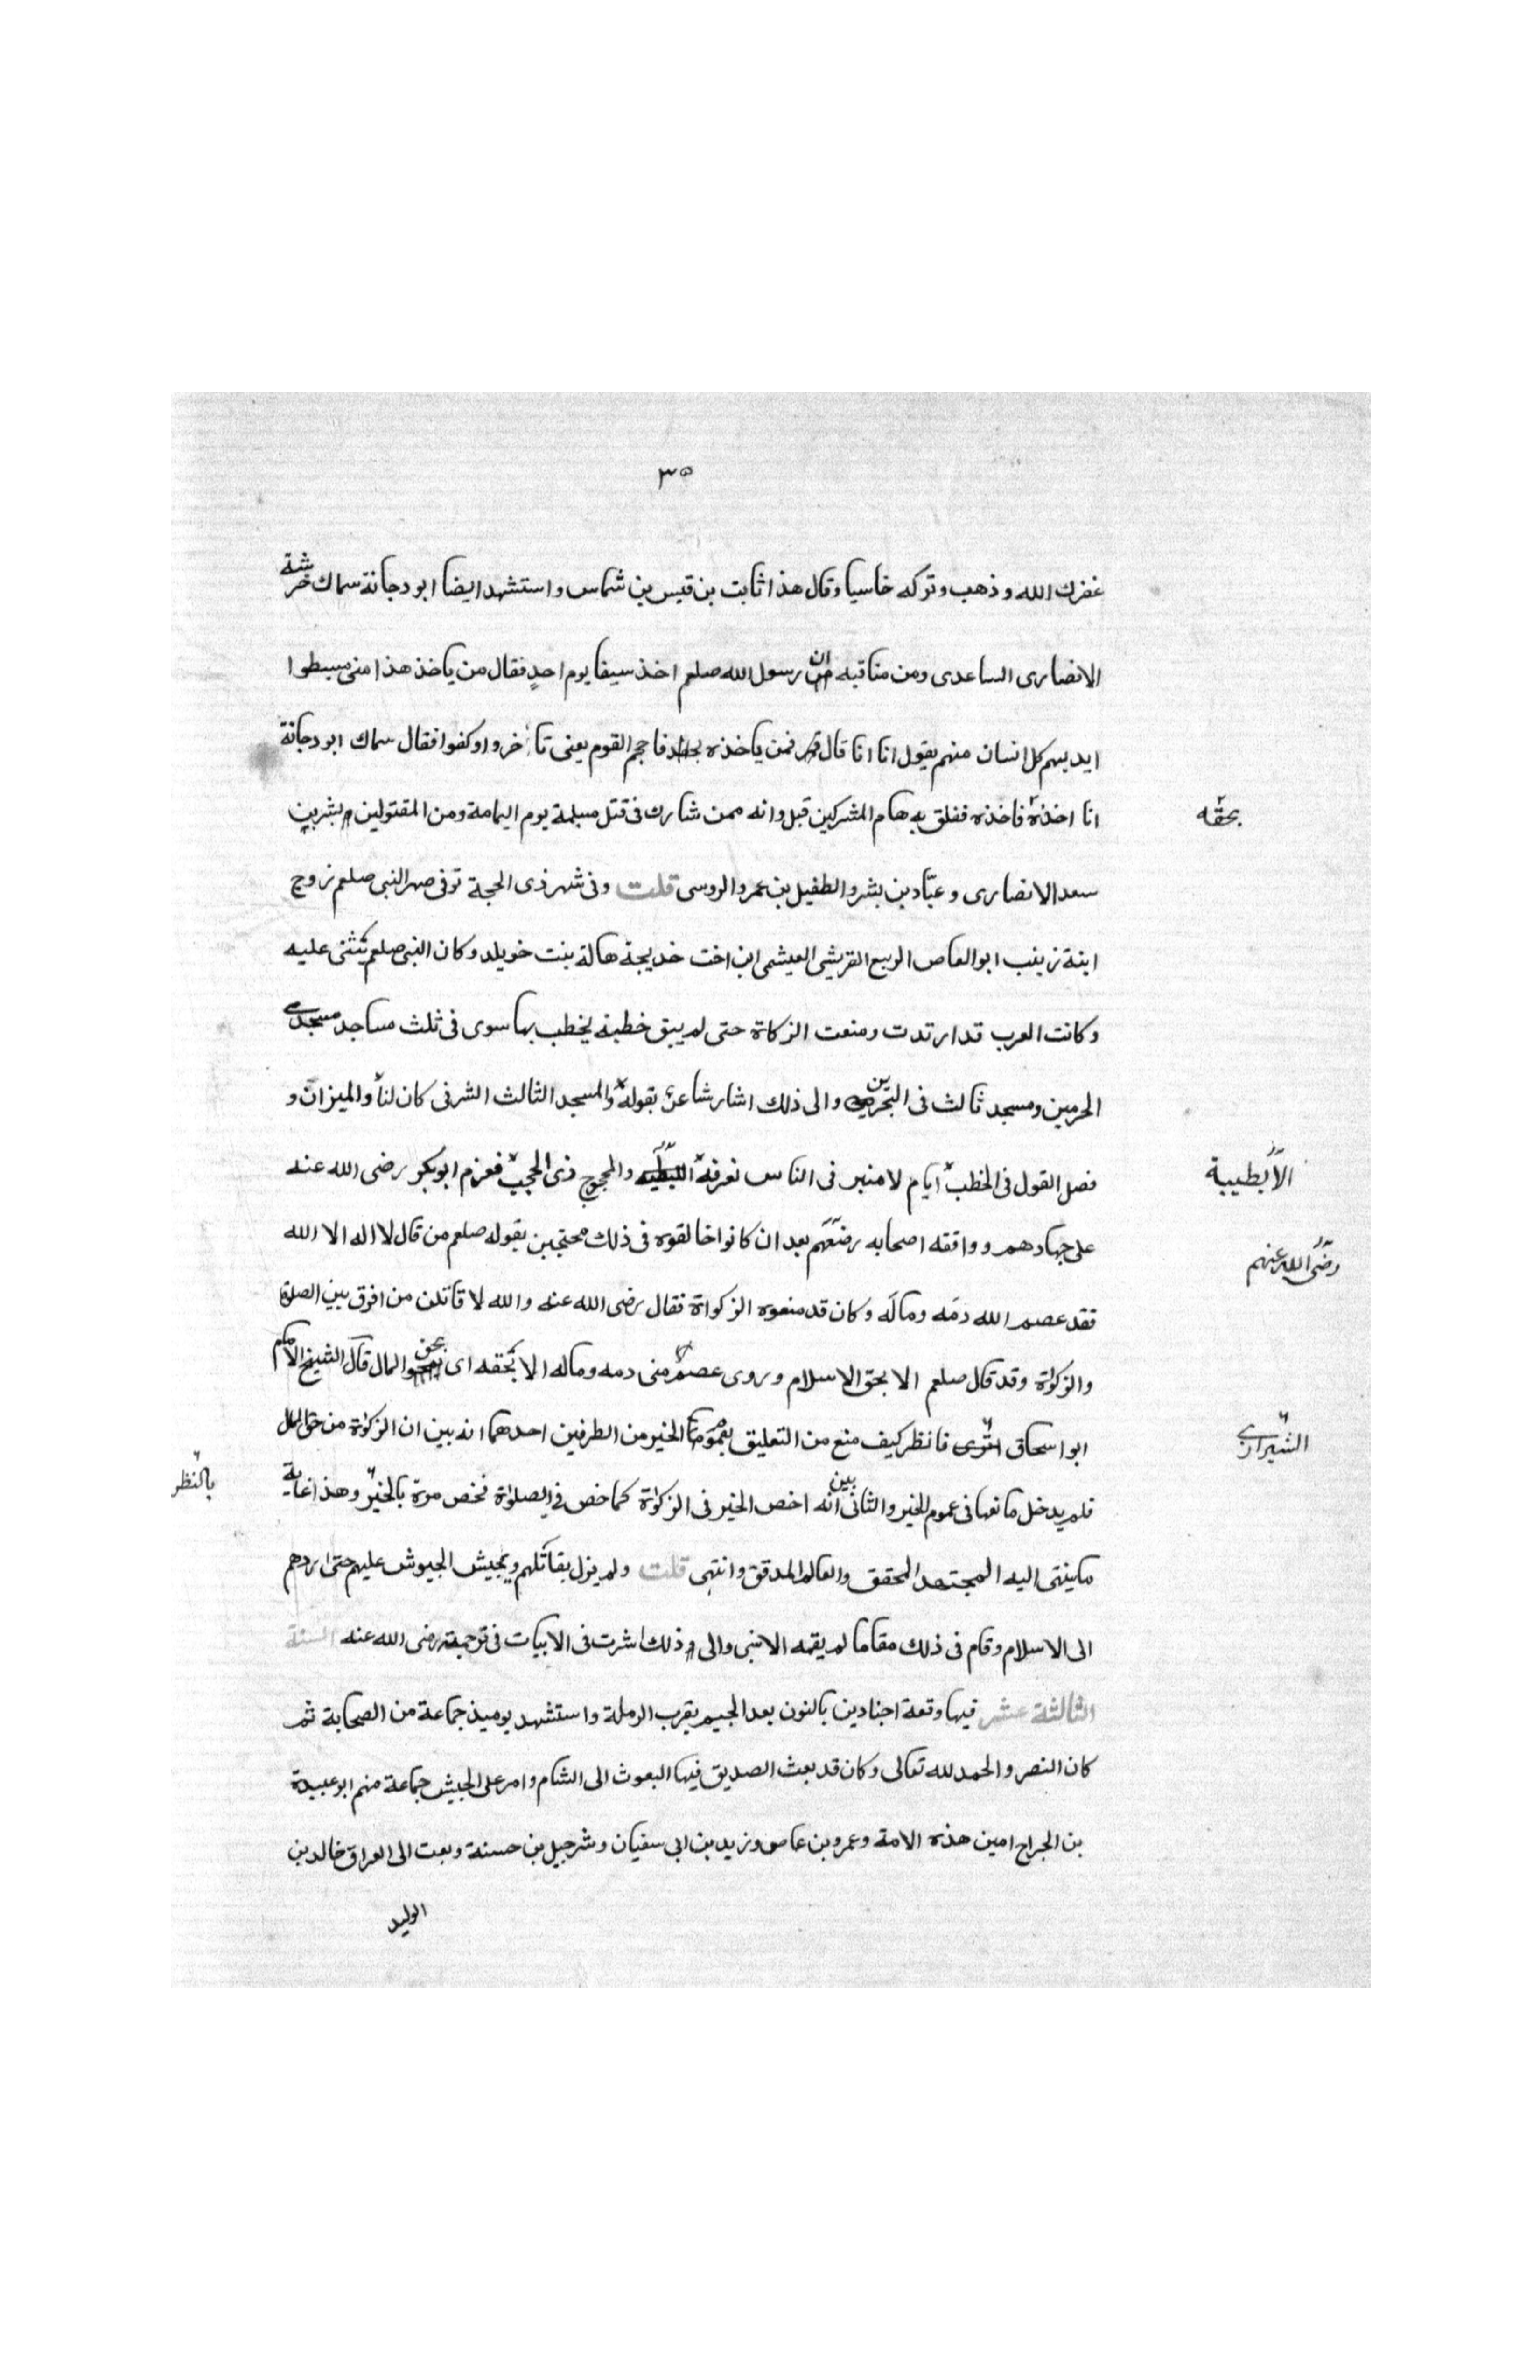 ٣٥
غفرك الله وذهب وتركه خاسيا وقال هذا ثابت بن قيس بن شماس واستشهد ايضا ابو دجانة سماك خرشة
الانصارى الساعدى ومن مناقبه ان رسول الله صلعم اخذ سيفا يوم احدٍ فقال من ياخذ هذا منى مبسطوا
ايديهم كل انسان منهم يقول انا انا قال فمن ياخذه فاحجم القوم يعنى تاخروا وكفوا فقال سماك ابو دجانة
بحقه
انا اخذه فاخذه ففلق به هام المشركين قبل وانه ممن شارك فى قتل مسيلمة يوم اليمامة ومن المقتولين بشر بن
سعد الانصارى وعبّاد بن بشر والطفيل بن عمرو الروسى قلت وفى شهر ذى الحجة توفى صهر النبى صلعم زوج
ابنة زينب ابو العاص الربيع القريشى العيشمى ابن اخت خديجة هالة بنت خويلد وكان النبى صلعم يثنى عليه
وكانت العرب قد ارتدت ومنعت الزكاة حتى لم يبق خطبة يخطب بها سوى فى ثلث مساجد مسجدى
الحرمين ومسجد ثالث فى البحرين والى ذلك اشار شاعر بقوله والمسجد الثالث الشرفى كان لنا والميزان و
الأبطيبة
فصل القول فى الخطب ايام لا منبر فى الناس نعرفه والمحجوج ذى الحجب فعزم ابو بكر رضى الله عنه
على جهادهم ووافقه اصحابه رضعهم بعد ان كانوا خالفوه فى ذلك محتجين بقوله صلعم من قال لا اله الا الله
رضى الله عنهم
فقد عصم الله دمَه ومالَه وكان قد منعوه الزكواة فقال رضى الله عنه والله لا قاتلن من افرق بين الصلوة
والزكوة وقد قال صلعم الا بحق الاسلام وروى عصم منى دمه وماله الا بحقه اى بحق المال قال الشيخ الامام
الشيرازى
ابو اسحاق فانظر كيف منع من التعليق بعموم الخبر من الطرفين احدهما انه بين ان الزكوة من حق المال
فلم يدخل مانعها فى عموم الخبر والثانى بين انه اخص الخبر فى الزكوة كما خص فى الصلواة فخص مرة بالخبر وهذا غاية
بالنظر
ما ينتهى اليه المجتهد المحقق والعالم المدقق وانتهى قلت ولم يزل يقاتلهم ويجيش الجيوش عليهم حتى اردهم
الى الاسلام وقام فى ذلك مقاما لم يقمه الا نبى والى ذلك اشرت فى الابيات فى ترجمته رضى الله عنه السنة
الثالثة عشر فيها وقعة اجنادين بالنون بعد الجيم بقرب الرملة واستشهد يوميذ جماعة من الصحابة ثم
كان النصر والحمد لله تعالى وكان قد بعث الصديق فيها البعوث الى الشام وامر على الجيش جماعة منهم ابو عبيدة
بن الجراح امين هذه الامة وعمرو بن عاص وزيد بن ابى سفيان وشرحبيل بن حسنة وبعث الى العراق خالد بن
الوليد